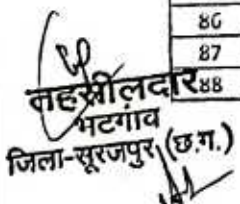 86
87
88
तहसीलदार
भटगांव
जिला-सूरजपुर (छ.ग.)